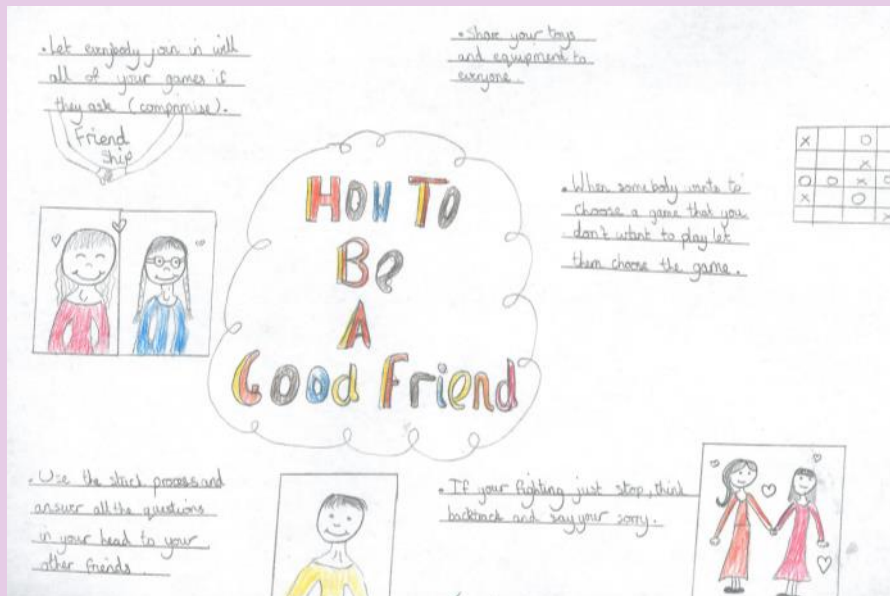 • Let everybody join in with
all of your games if
they ask (compromise).
Friend
ship
• Share your toys
and equipment to
everyone
HOW TO
Be
A
Good Friend
• When somebody wants to
choose a game that you
don't want to play let
them choose the game.
X O
X
O O X O
X O
• Use the process and
answer all the questions
in your head to your
other friends
• If your fighting just stop, think
back and say your sorry.